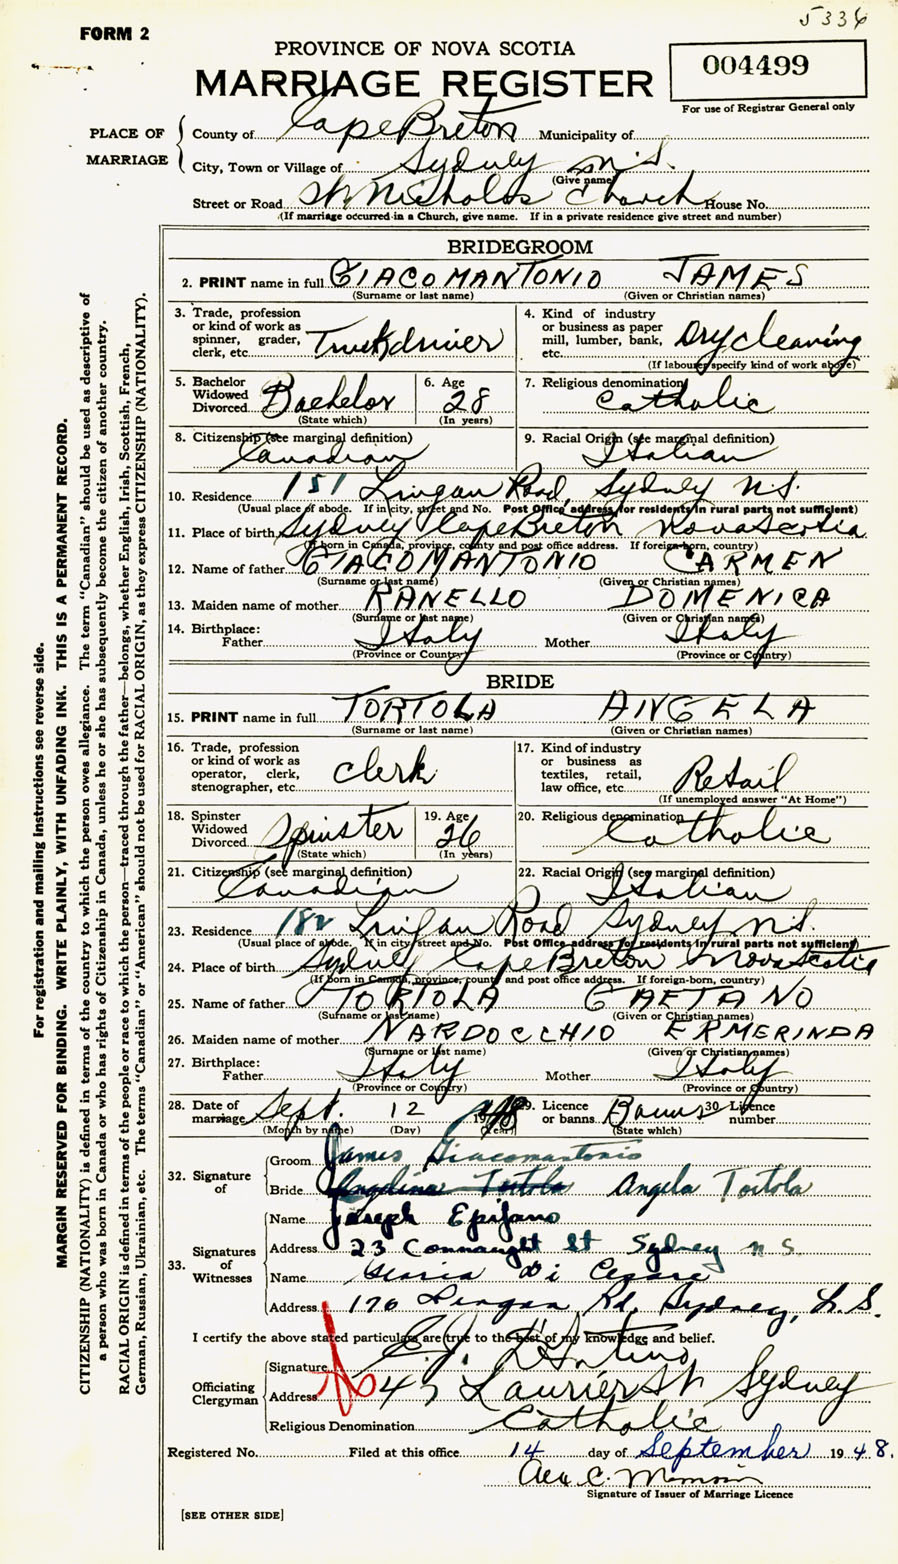 5336
FORM 2
PROVINCE OF NOVA SCOTIA
MARRIAGE REGISTER
004499
For use of Registrar General only
PLACE OF MARRIAGE
County of Cape Breton Municipality of
City, Town or Village of Sydney N.S.
(Give name)
Street or Road St Nicholas Church House No.
(If marriage occurred in a Church, give name. If in a private residence give street and number)
BRIDEGROOM
2. PRINT name in full GIACOMANTONIO JAMES
(Surname or last name) (Given or Christian names)
3. Trade, profession or kind of work as spinner, grader, clerk, etc. Truckdriver
4. Kind of industry or business as paper mill, lumber, bank, etc. Dry cleaning
(If labourer specify kind of work above)
5. Bachelor Widowed Divorced Bachelor
(State which)
6. Age 28
(In years)
7. Religious denomination Catholic
8. Citizenship (see marginal definition) Canadian
9. Racial Origin (see marginal definition) Italian
10. Residence 151 Lingan Road, Sydney N.S.
(Usual place of abode. If in city, street and No. Post Office address for residents in rural parts not sufficient)
11. Place of birth Sydney Cape Breton Nova Scotia
(If born in Canada, province, county and post office address. If foreign-born, country)
12. Name of father GIACOMANTONIO CARMEN
(Surname or last name) (Given or Christian names)
13. Maiden name of mother RANELLO DOMENICA
(Surname or last name) (Given or Christian names)
14. Birthplace: Father Italy Mother Italy
(Province or Country) (Province or Country)
BRIDE
15. PRINT name in full TORTOLA ANGELA
(Surname or last name) (Given or Christian names)
16. Trade, profession or kind of work as operator, clerk, stenographer, etc. Clerk
17. Kind of industry or business as textiles, retail, law office, etc. Retail
(If unemployed answer "At Home")
18. Spinster Widowed Divorced Spinster
(State which)
19. Age 26
(In years)
20. Religious denomination Catholic
21. Citizenship (see marginal definition) Canadian
22. Racial Origin (see marginal definition) Italian
23. Residence 182 Lingan Road Sydney N.S.
(Usual place of abode. If in city street and No. Post Office address for residents in rural parts not sufficient)
24. Place of birth Sydney Cape Breton Nova Scotia
(If born in Canada, province, county and post office address. If foreign-born, country)
25. Name of father TORTOLA GAETANO
(Surname or last name) (Given or Christian names)
26. Maiden name of mother NARDOCCHIO ERMERINDA
(Surname or last name) (Given or Christian names)
27. Birthplace: Father Italy Mother Italy
(Province or Country) (Province or Country)
28. Date of marriage Sept. 12 1948
(Month by name) (Day) (Year)
29. Licence or banns Banns
(State which)
30. Licence number
32. Signature of
Groom James Giacomantonio
Bride Angelina Tortola Angela Tortola
33. Signatures of Witnesses
Name Joseph Epifano
Address 23 Connaught St Sydney N.S.
Name Gloria Di Cesare
Address 176 Lingan Rd, Sydney, N.S.
I certify the above stated particulars are true to the best of my knowledge and belief.
Officiating Clergyman
Signature
Address 47 Laurier St Sydney
Religious Denomination Catholic
Registered No. Filed at this office 14 day of September 1948.
Signature of Issuer of Marriage Licence
[SEE OTHER SIDE]
For registration and mailing instructions see reverse side.
MARGIN RESERVED FOR BINDING. WRITE PLAINLY, WITH UNFADING INK. THIS IS A PERMANENT RECORD.
CITIZENSHIP (NATIONALITY) is defined in terms of the country to which the person owes allegiance. The term "Canadian" should be used as descriptive of
a person who was born in Canada or who has rights of Citizenship in Canada, unless he or she has subsequently become the citizen of another country.
RACIAL ORIGIN is defined in terms of the people or race to which the person—traced through the father—belongs, whether English, Irish, Scottish, French,
German, Russian, Ukrainian, etc. The terms "Canadian" or "American" should not be used for RACIAL ORIGIN, as they express CITIZENSHIP (NATIONALITY).